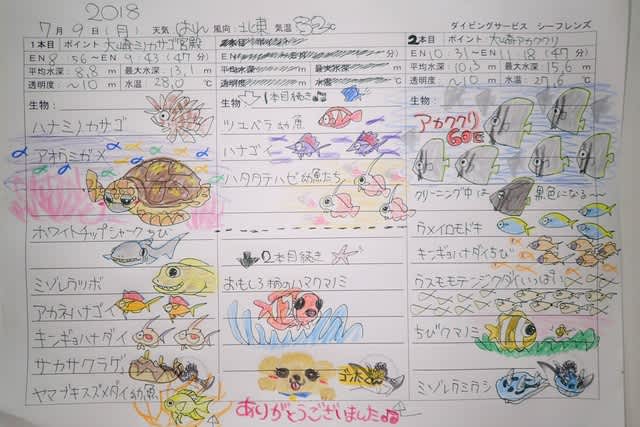 2018
7月9日(月) 天気 はれ 風向 北東 気温 32℃
ダイビングサービス シーフレンズ
1本目 ポイント 大崎ミノカサゴ宮殿
EN 8:56～EX 9:43 (47分)
平均水深 8.8m 最大水深 13.1m
透明度 ～10m 水温 28.0℃
生物:
ハナミノカサゴ
アオウミガメ
ホワイトチップシャークちび
ミゾレウツボ
アカネハナゴイ
キンギョハナダイ
サカサクラゲ
ヤマブキスズメダイ幼魚
生物
1本目続き
ツユベラ幼魚
ハナゴイ
ハタタテハゼ幼魚たち
2本目続き
おもしろ柄のハマクマノミ
ありがとうございました
2本目 ポイント 大崎アカククリ
EN 10:31～EX 11:18 (47分)
平均水深 10.3m 最大水深 15.6m
透明度 ～10m 水温 27.6℃
生物:
アカククリ
60匹
クリーニング中は黒色になる～
ウメイロモドキ
キンギョハナダイちび
ウスモモテンジクダイいっぱい
ちびクマノミ
ミゾレウミウシ